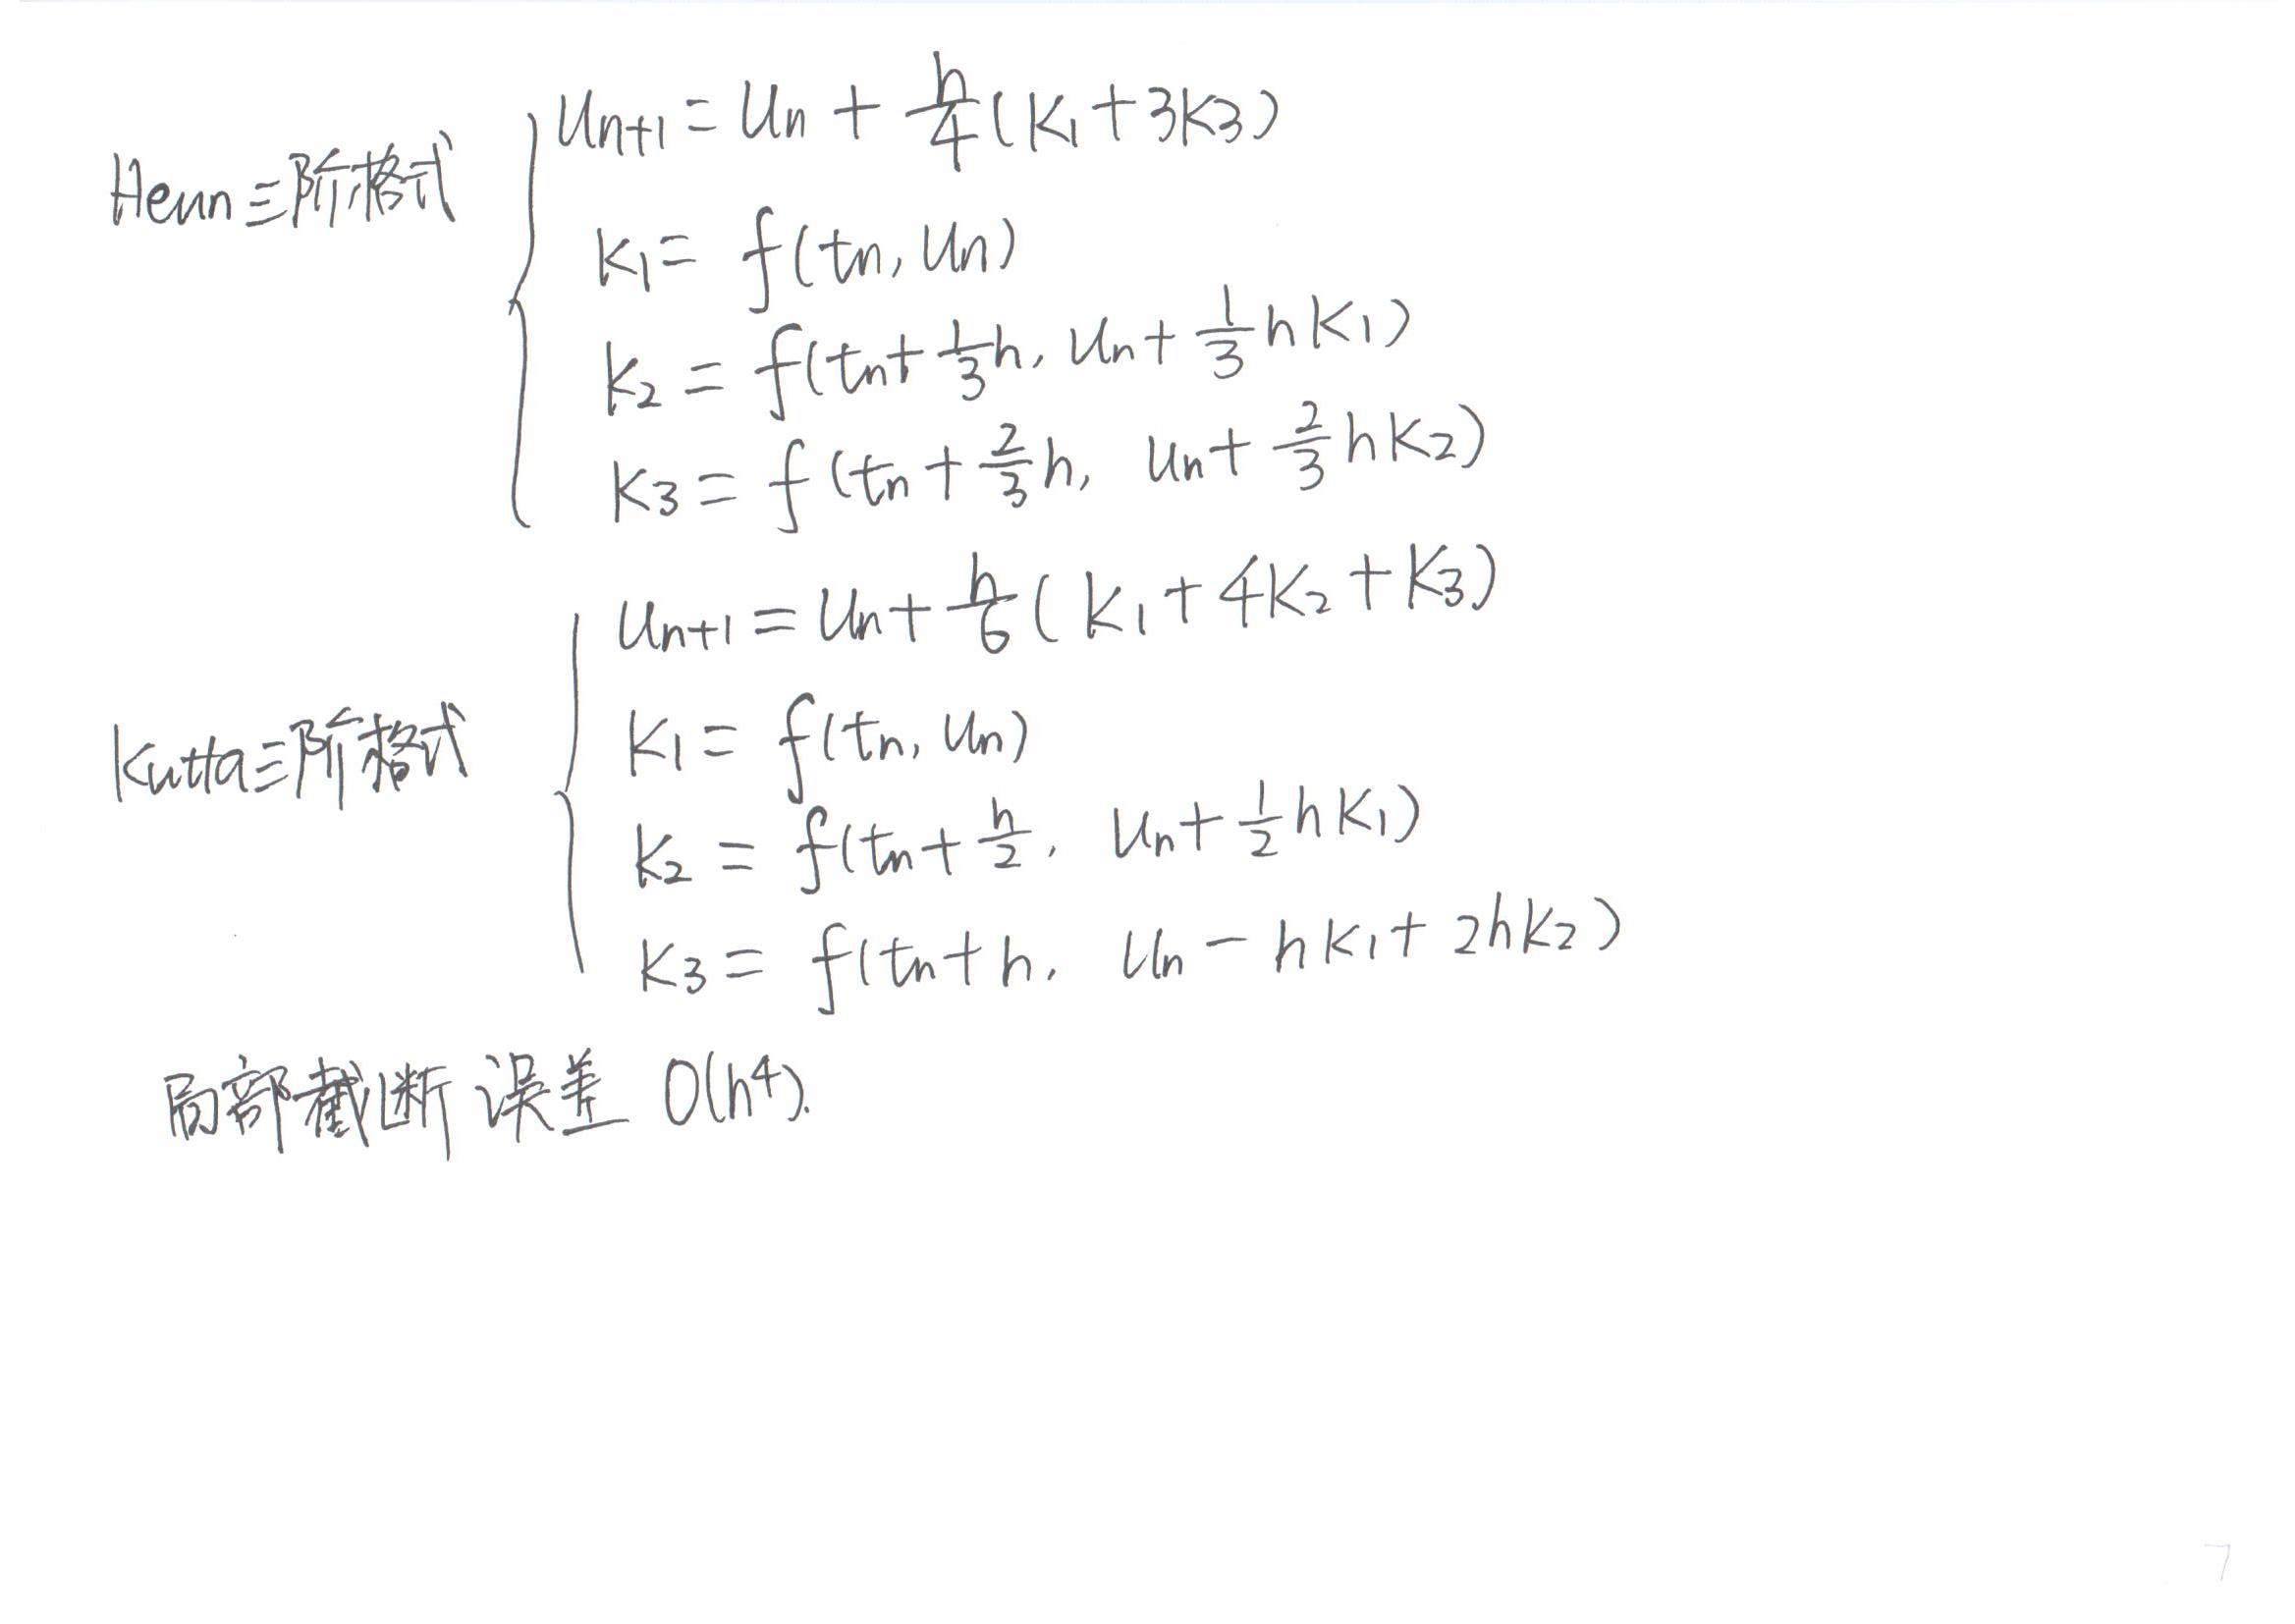 Heun三阶格式
Un+1 = Un + h/4 (K1 + 3K3)
K1 = f(tn, Un)
K2 = f(tn + 1/3 h, Un + 1/3 hK1)
K3 = f(tn + 2/3 h, Un + 2/3 hK2)
Kutta三阶格式
Un+1 = Un + h/6 (K1 + 4K2 + K3)
K1 = f(tn, Un)
K2 = f(tn + h/2, Un + 1/2 hK1)
K3 = f(tn + h, Un - hK1 + 2hK2)
局部截断误差 O(h⁴).
7